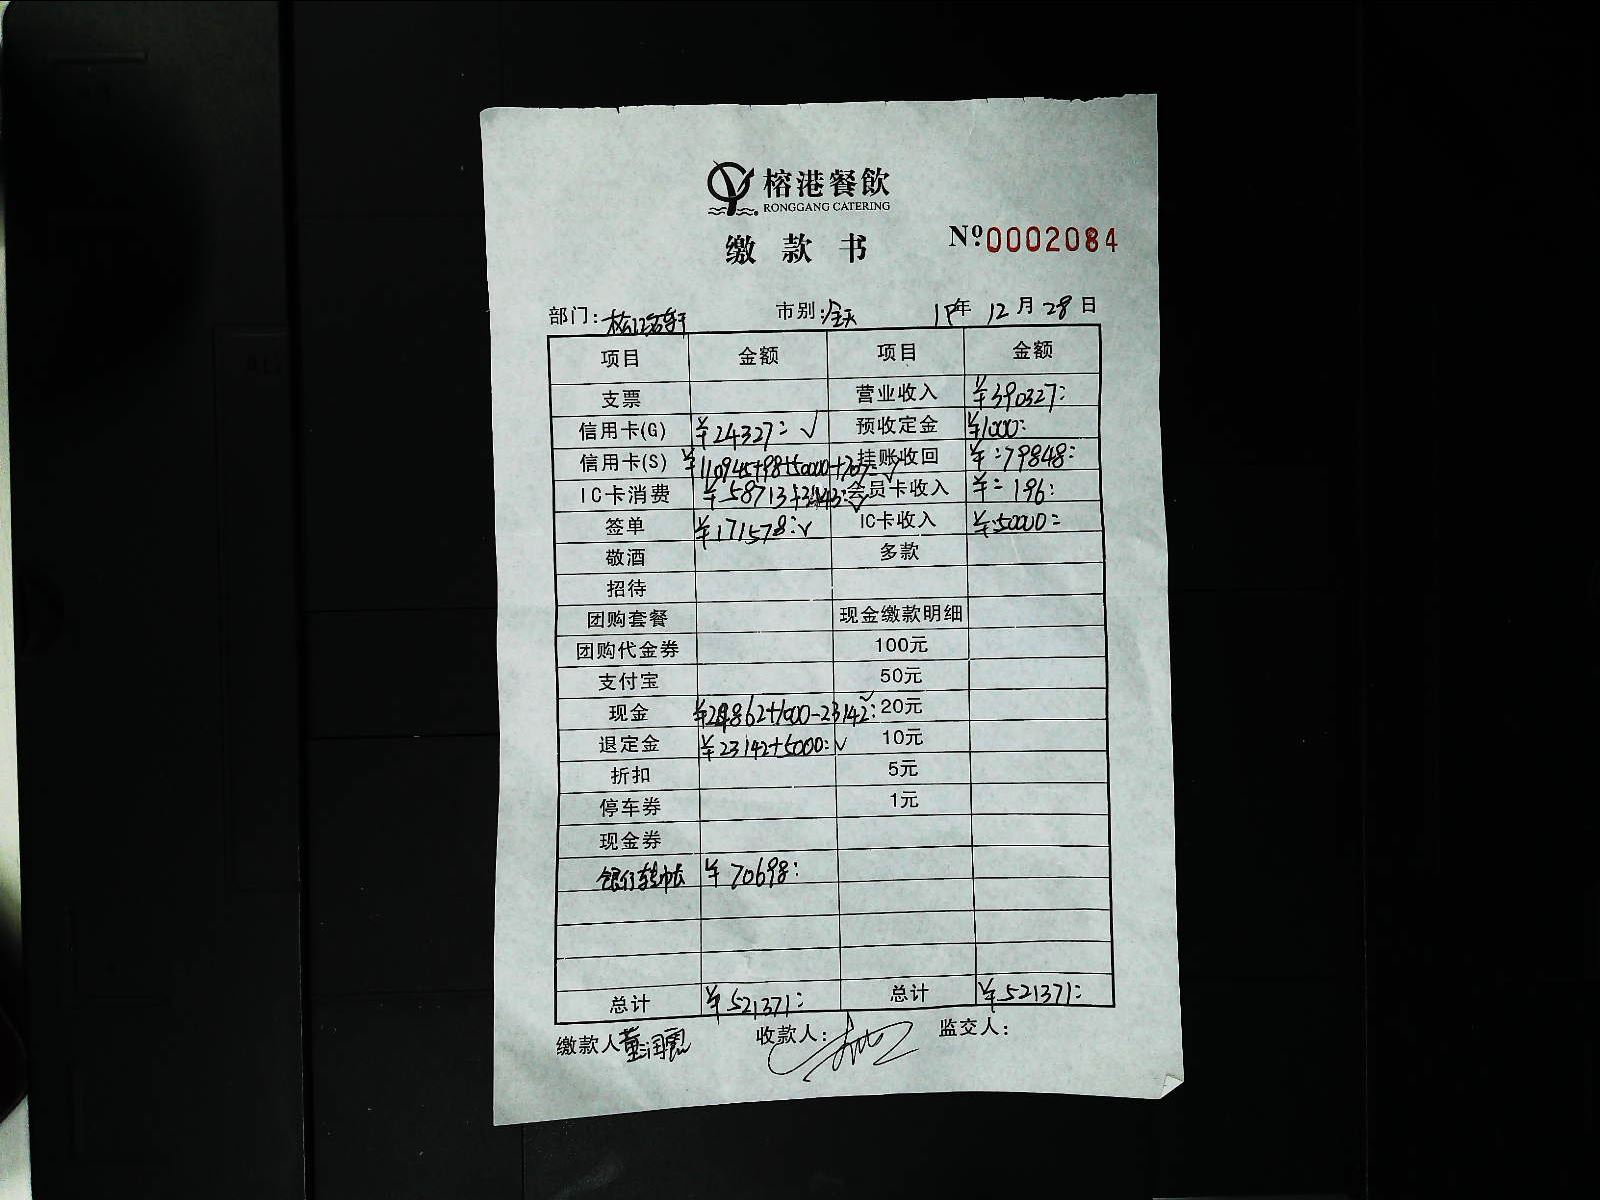 榕港餐飲
RONGGANG CATERING
缴款书
Nº0002084
部门: 市别:全天 18年 12月 28日
项目 金额 项目 金额
支票 营业收入 ¥390327:
信用卡(G) ¥24327:√ 预收定金 ¥1000:
信用卡(S) ¥110945+98+50000+707:√ 挂账收回 ¥:79848:
IC卡消费 ¥58713+3443:√ 会员卡收入 ¥=196:
签单 ¥171578:√ IC卡收入 ¥:50000=
敬酒 多款
招待
团购套餐 现金缴款明细
团购代金券 100元
支付宝 50元
现金 ¥24862+1000-23142: 20元
退定金 ¥23142+5000:√ 10元
折扣 5元
停车券 1元
现金券
银行转帐 ¥70698:
总计 ¥521371: 总计 ¥521371:
缴款人 董润霞 收款人: 监交人: